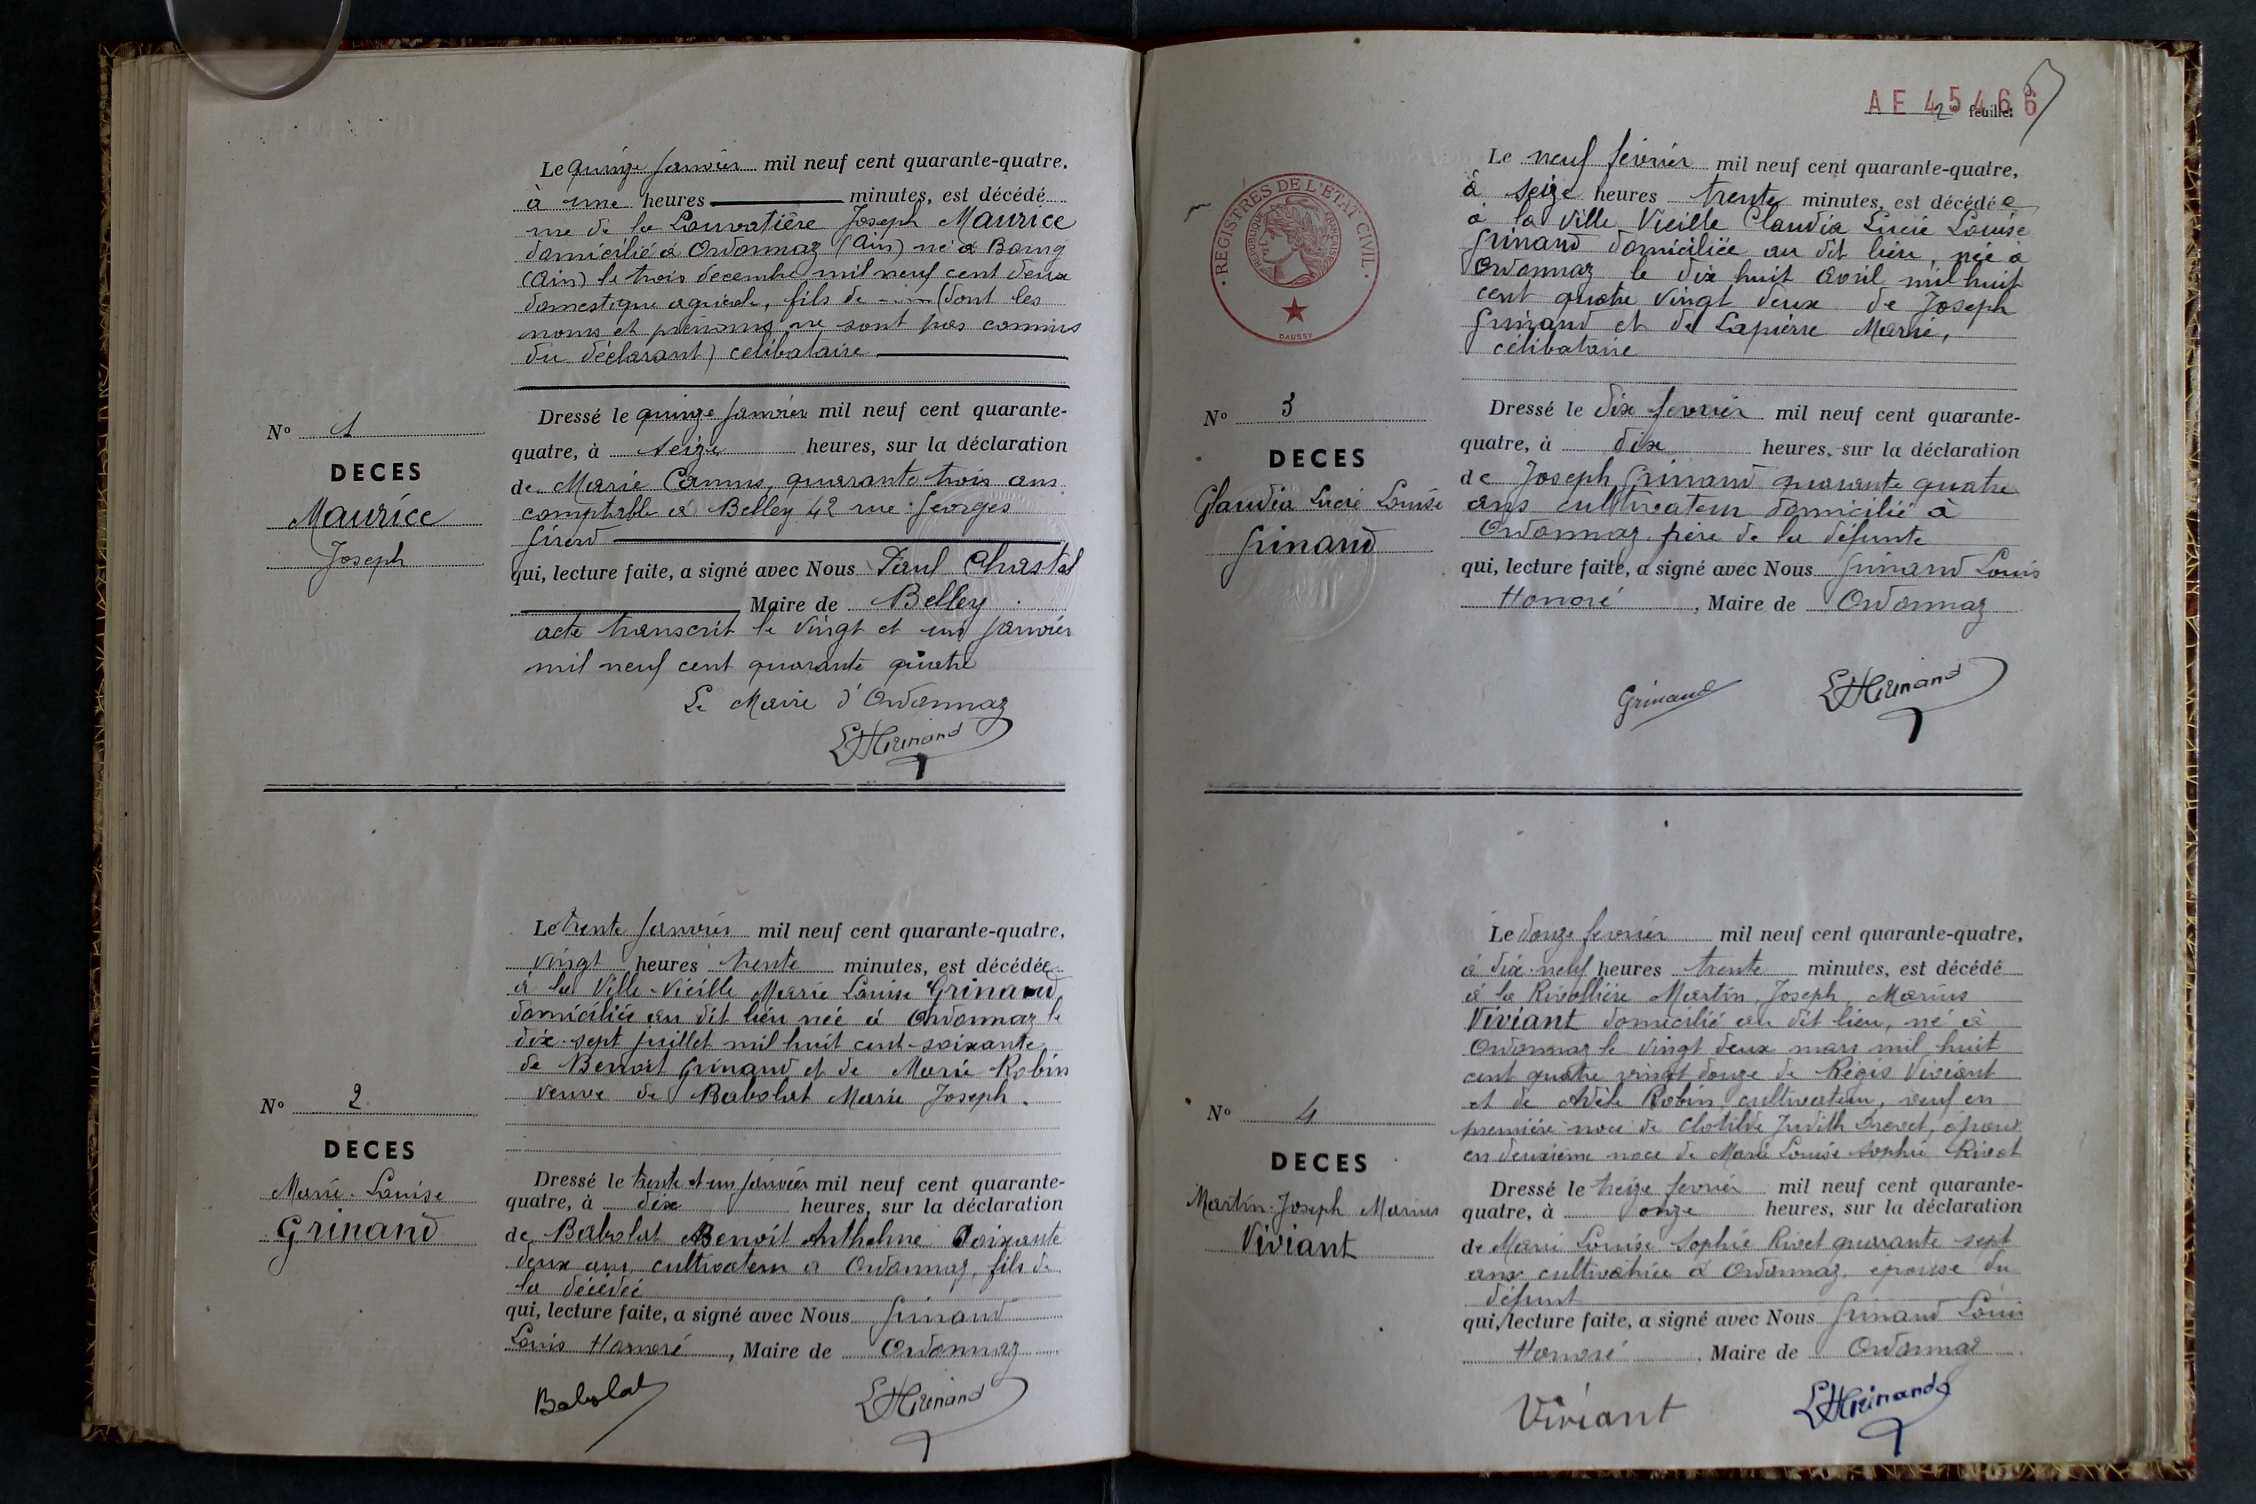 Le quinze Janvier mil neuf cent quarante-quatre,
à une heures minutes, est décédé
rue de la Louvatière Joseph Maurice
domicilié à Ordonnaz (Ain) né à Bourg
(Ain) le trois decembre mil neuf cent deux
domestique agricole, fils de (dont les
noms et prénoms ne sont pas connus
du déclarant) celibataire
Nº 1
DECES
Maurice
Joseph
Dressé le quinze Janvier mil neuf cent quarante-
quatre, à seize heures, sur la déclaration
de Marie Camus, quarante trois ans
comptable à Belley 42 rue Georges
Girerd
qui, lecture faite, a signé avec Nous Paul Chastel
Maire de Belley
acte transcrit le vingt et un Janvier
mil neuf cent quarante quatre
Le Maire d'Ordonnaz
LHGrinand
Le trente Janvier mil neuf cent quarante-quatre,
vingt heures trente minutes, est décédée
à la Ville-Vieille Marie Louise Grinand
domiciliée au dit lieu née à Ordonnaz le
dix-sept juillet mil huit cent-soixante
de Benoit Grinand et de Marie Robin
veuve de Babolat Marie Joseph.
Nº 2
DECES
Marie-Louise
Grinand
Dressé le trente et un janvier mil neuf cent quarante-
quatre, à dix heures, sur la déclaration
de Babolat Benoit Anthelme Soixante
deux ans cultivateur à Ordonnaz, fils de
la décédée
qui, lecture faite, a signé avec Nous Grinand
Louis Honoré, Maire de Ordonnaz
Babolat LHGrinand
AE 45466
2 feuille
REGISTRES DE L'ETAT CIVIL
REPUBLIQUE FRANCAISE
DAUSSY
Le neuf février mil neuf cent quarante-quatre,
à seize heures trente minutes, est décédée
à la Ville Vieille Claudia Lucie Louise
Grinand domiciliée au dit lieu, née à
Ordonnaz le dix huit avril mil huit
cent quatre vingt deux de Joseph
Grinand et de Lapierre Marie,
célibataire
Nº 3
DECES
Claudia Lucie Louise
Grinand
Dressé le dix fevrier mil neuf cent quarante-
quatre, à dix heures, sur la déclaration
de Joseph Grinand quarante quatre
ans cultivateur domicilié à
Ordonnaz frère de la défunte
qui, lecture faite, a signé avec Nous Grinand Louis
Honoré, Maire de Ordonnaz
Grinand LHGrinand
Le douze fevrier mil neuf cent quarante-quatre,
à dix-neuf heures trente minutes, est décédé
à la Rivollière Martin, Joseph, Marius
Viviant domicilié au dit lieu, né à
Ordonnaz le vingt deux mars mil huit
cent quatre vingt douze de Régis Viviant
et de Adèle Robin, cultivateur, veuf en
première noce de Clotilde Judith époux
en deuxième noce de Marie Louise Sophie Rivet
Nº 4
DECES
Martin-Joseph Marius
Viviant
Dressé le treize fevrier mil neuf cent quarante-
quatre, à onze heures, sur la déclaration
de Marie Louise Sophie Rivet quarante sept
ans cultivatrice à Ordonnaz, epouse du
défunt
qui, lecture faite, a signé avec Nous Grinand Louis
Honoré, Maire de Ordonnaz
Viviant LHGrinand